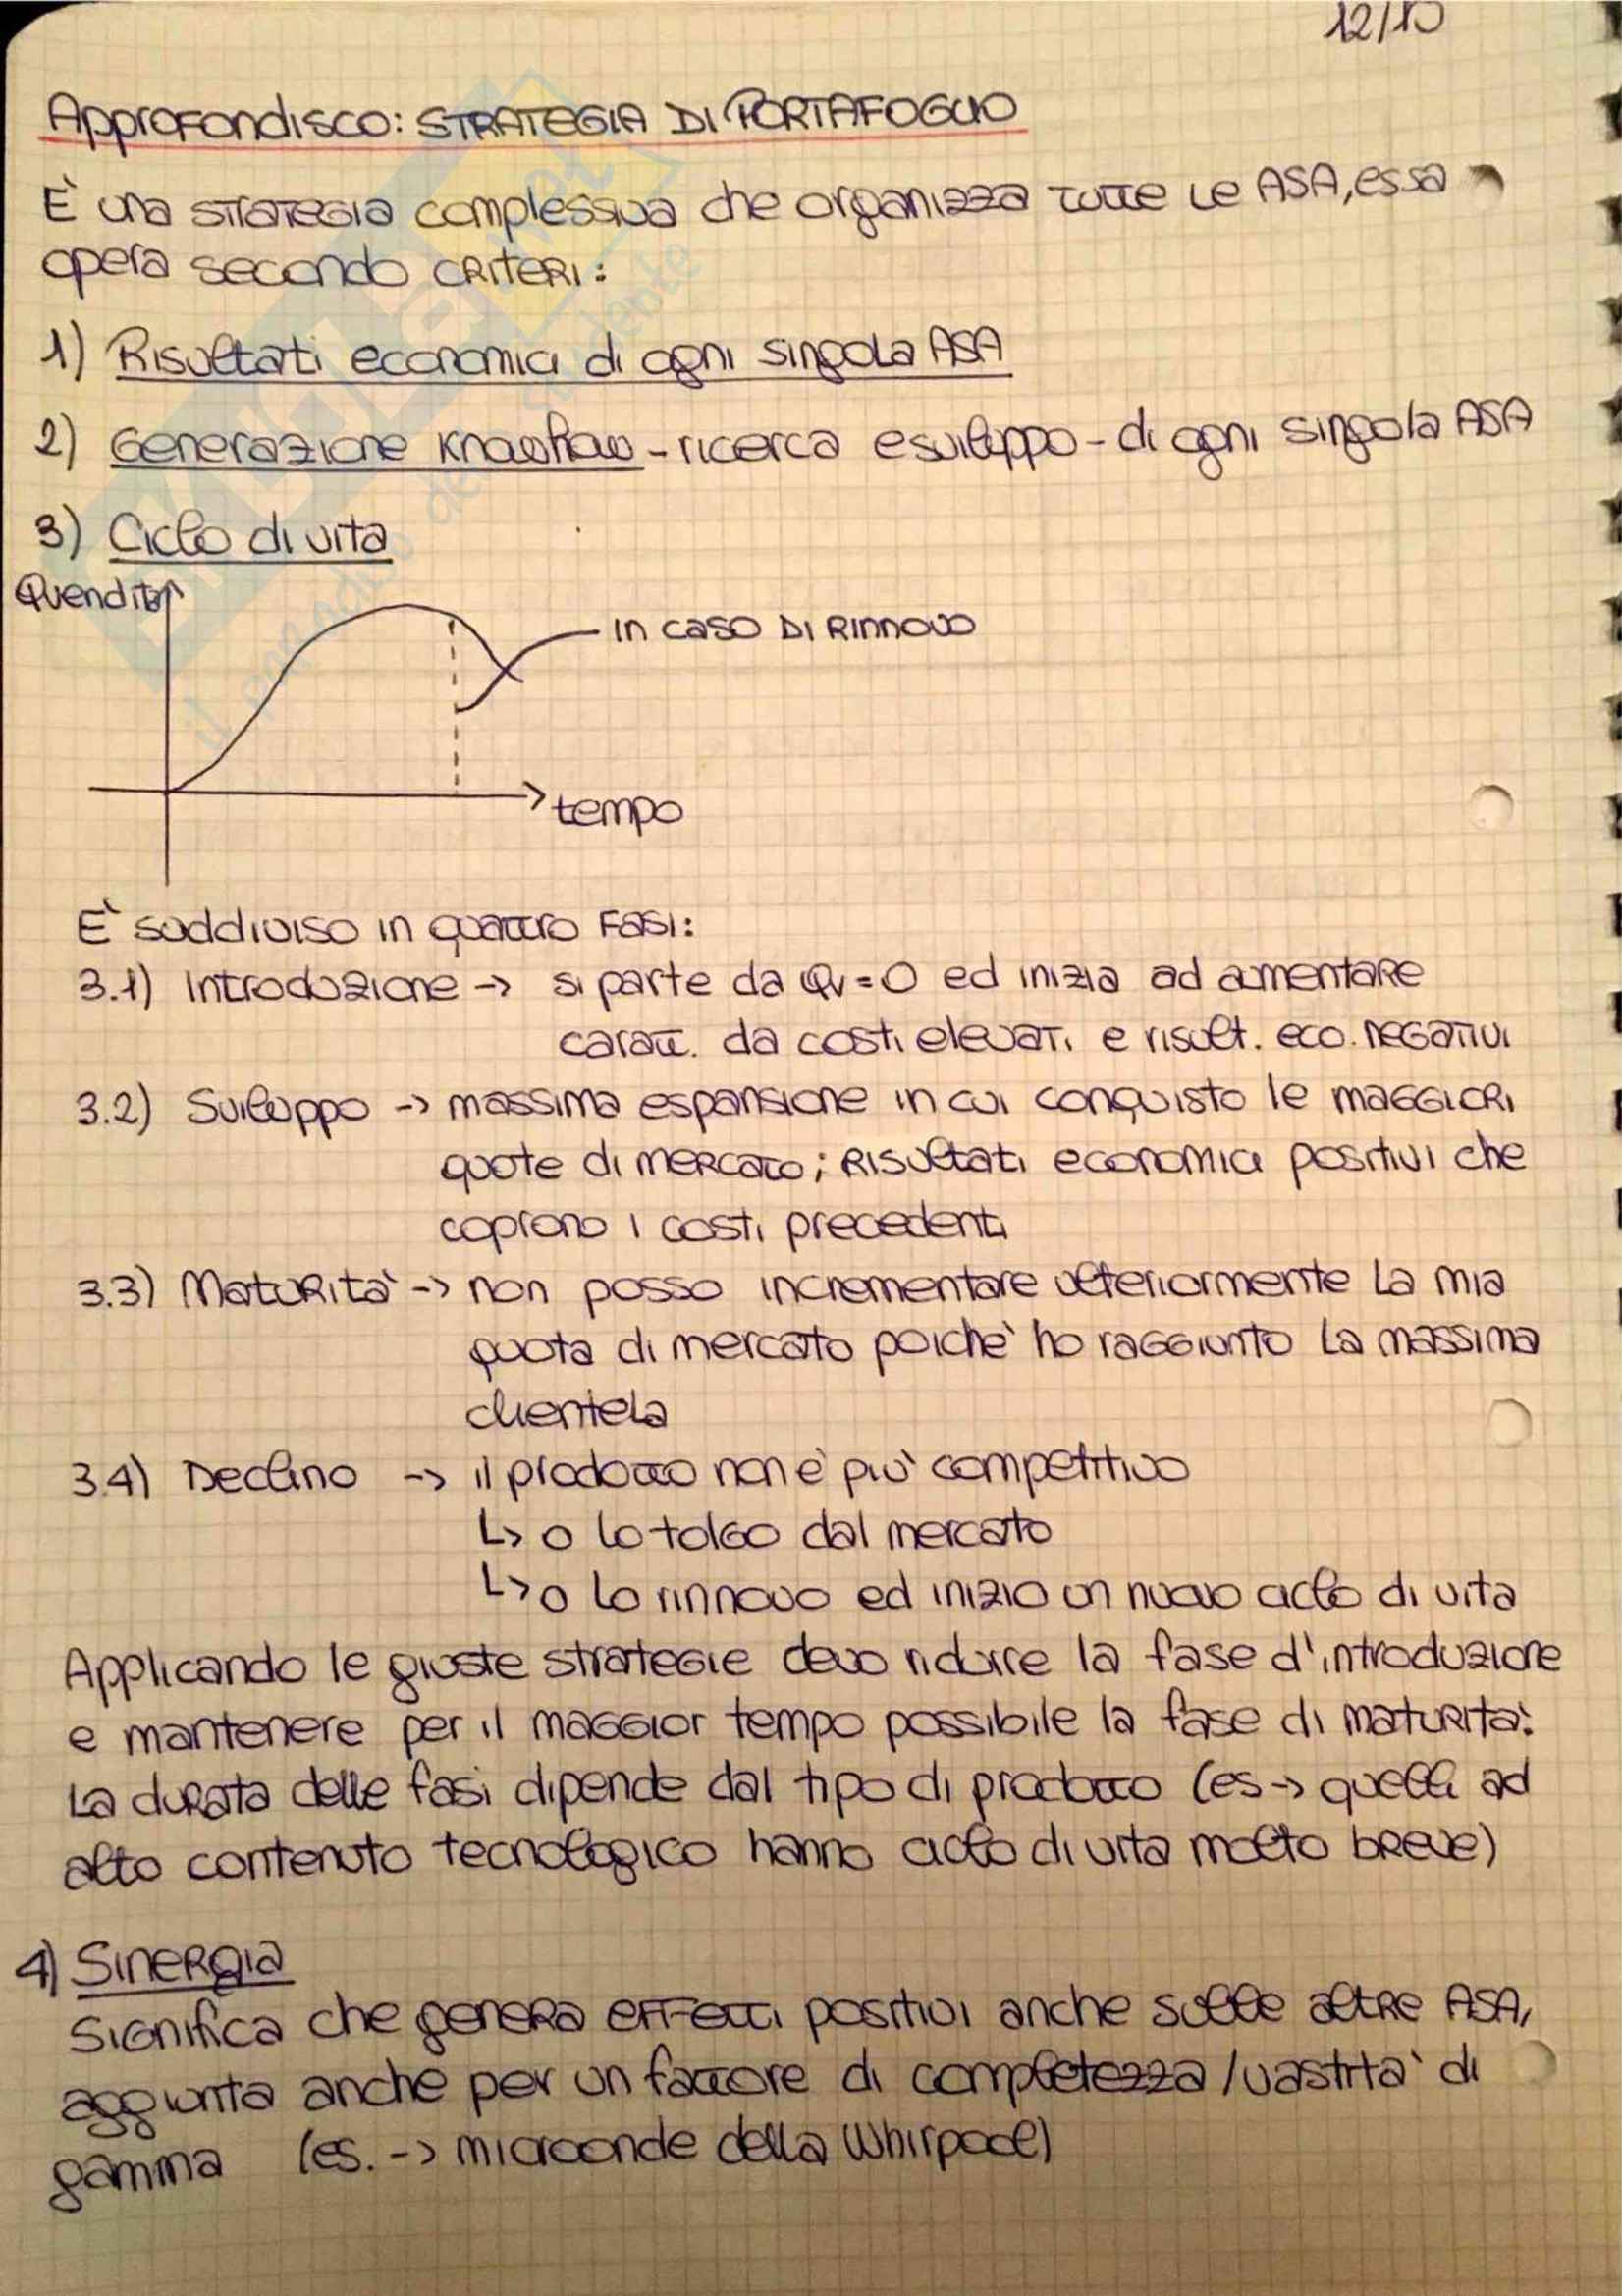 12/10
Approfondisco: STRATEGIA DI PORTAFOGLIO
È una strategia complessiva che organizza tutte le ASA, essa
opera secondo CRITERI:
1) Risultati economici di ogni singola ASA
2) Generazione Knowhow - ricerca e sviluppo - di ogni singola ASA
3) Ciclo di vita
Qvendita
In caso DI RINNOVO
tempo
È suddiviso in quattro FASI:
3.1) Introduzione -> si parte da Qv=0 ed inizia ad aumentare
caratt. da costi elevati e risult. eco. negativi
3.2) Sviluppo -> massima espansione in cui conquisto le maggiori
quote di mercato; Risultati economici positivi che
coprono i costi precedenti
3.3) Maturità -> non posso incrementare ulteriormente la mia
quota di mercato poichè ho raggiunto la massima
clientela
3.4) Declino -> il prodotto non è più competitivo
↳ o lo tolgo dal mercato
↳ o lo rinnovo ed inizio un nuovo ciclo di vita
Applicando le giuste strategie devo ridurre la fase d'introduzione
e mantenere per il maggior tempo possibile la fase di maturità.
La durata delle fasi dipende dal tipo di prodotto (es -> quelli ad
alto contenuto tecnologico hanno ciclo di vita molto breve)
4) Sinergia
Significa che genera effetti positivi anche sulle altre ASA,
aggiunta anche per un fattore di completezza/vastità di
gamma (es. -> microonde della Whirpool)